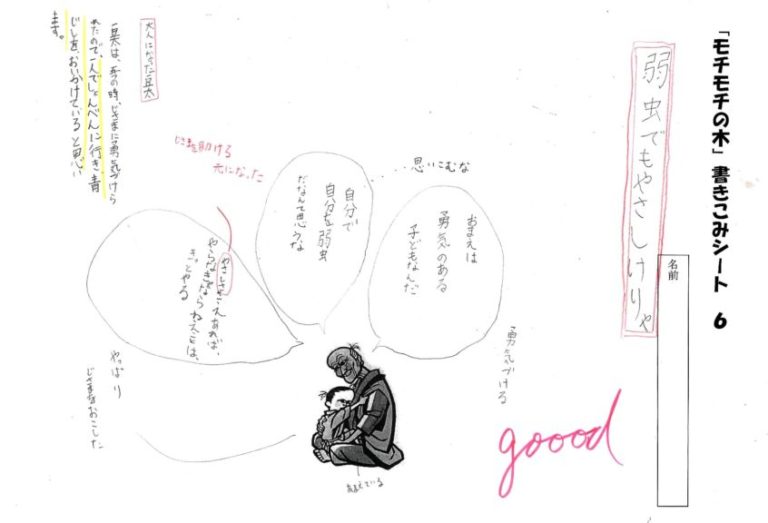 「モチモチの木」書きこみシート 6
名前
弱虫でもやさしけりゃ
goood
勇気づける
おまえは
勇気のある
子どもなんだ
思いこむな
自分で
自分を弱虫
だなんて思うな
じさまを助ける
元になった
やさしささえあれば、
やらなきゃならねえことは、
きっとやる
やっぱり
じさまをおこした
大人になった豆太
豆太は、その時、じさまに勇気づけら
れたので、一人でしょんべんに行き、青
じしを、おいかけていると思い
ます。